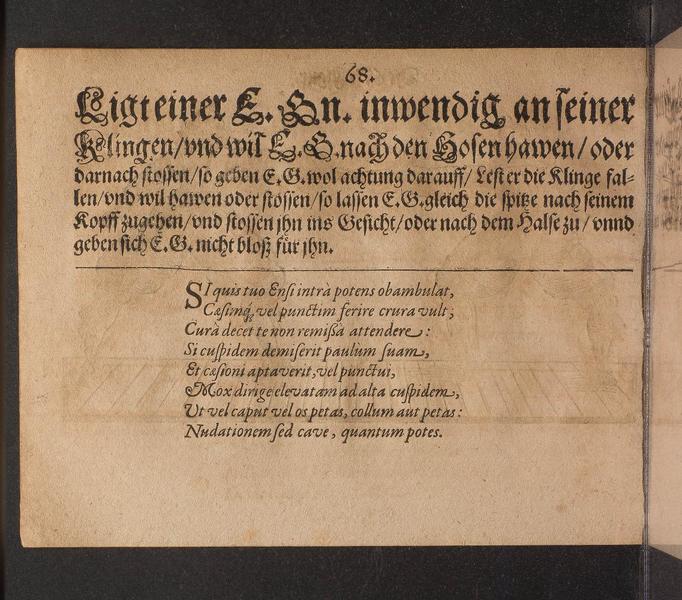 68.
Ligt einer E. Gn. inwendig an seiner
Klingen/vnd wil E. G. nach den Hosen hawen/ oder
darnach stossen/so geben E. G. wol achtung darauff/ Lest er die Klinge fal-
len/vnd wil hawen oder stossen/so lassen E. G. gleich die spitze nach seinem
Kopff zugehen/vnd stossen jhn ins Gesicht/oder nach dem Halse zu/ vnnd
geben sich E. G. nicht bloß für jhn.
SI quis tuo Ensi intrà potens obambulat,
Cæsimq́, vel punctim ferire crura vult;
Curâ decet te non remißâ attendere:
Si cuspidem demiserit paulùm suam,
Et cæsioni aptaverit, vel punctui,
Mox dirige elevatam ad alta cuspidem,
Ut vel caput vel os petas, collum aut petas:
Nudationem sed cave, quantum potes.